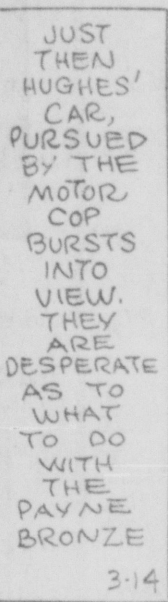 JUST
THEN
HUGHES'
CAR,
PURSUED
BY THE
MOTOR
COP
BURSTS
INTO
VIEW.
THEY
ARE
DESPERATE
AS TO
WHAT
TO DO
WITH
THE
PAYNE
BRONZE
3-14